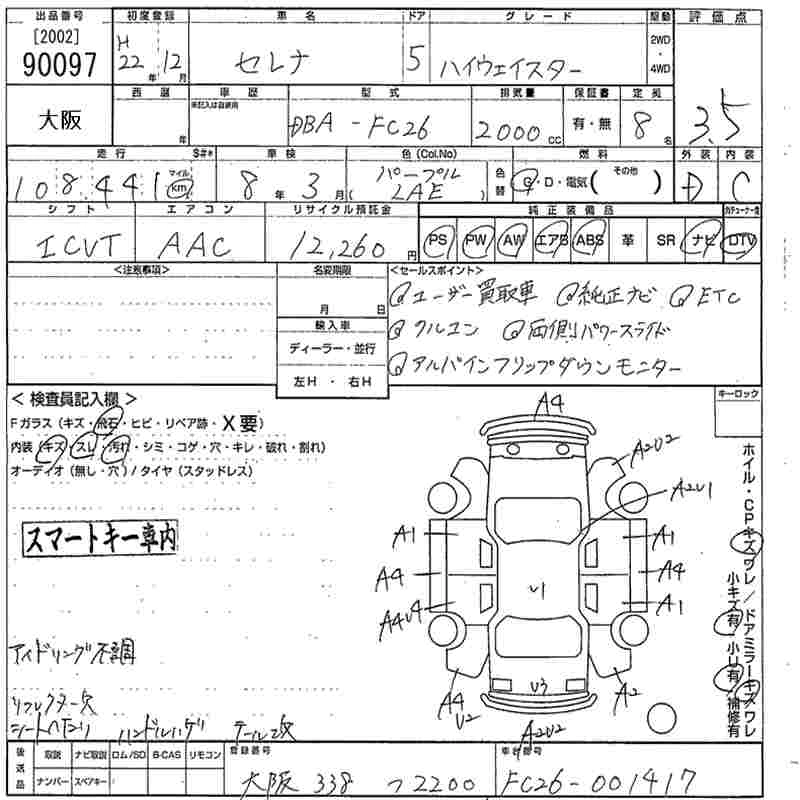 出品番号 初度登録 車名 ドア グレード 駆動 評価点
[2002] H 2WD
90097 22年 12月 セレナ 5 ハイウェイスター ・
4WD
西暦 車歴 型式 排気量 保証書 定員
※記入は自家用
大阪 年 DBA-FC26 2000cc 有・無 8名 3.5
走行 S#* 車検 色(Col.No) 燃料 外装 内装
108441 マイル km 8年 3月 パープル 色替 G・D・電気( その他 ) D C
( LAE )
シフト エアコン リサイクル預託金 純正装備品 地デジチューナー
ICVT AAC 12,260円 PS PW AW エアB ABS 革 SR ナビ DTV
<注意事項> 名変期限 <セールスポイント>
月 日 ユーザー買取車 純正ナビ ETC
輸入車 クルコン 両側パワースライド
ディーラー・並行 アルパインフリップダウンモニター
左H ・ 右H
< 検査員記入欄 > キーロック
Fガラス(キズ・飛石・ヒビ・リペア跡・X要)
内装(キズ・スレ・汚れ・シミ・コゲ・穴・キレ・破れ・割れ)
オーディオ(無し・穴)/タイヤ(スタッドレス)
A4
A2U2
A2U1
スマートキー車内
A1 A1
A4 U1 A4
A4U4 A1
アイドリング不調
U3
リフレクター欠 A4 A2
U2
シートヘタリ ハンドルハゲ テール改 A2U2
ホイル・CPキズワレ/ドアミラーキズワレ
小キズ有・小U有・補修有
後送品 取説 ナビ取説 ロム/SD B-CAS リモコン 登録番号 車台番号
ナンバー スペアキー 大阪 338 つ2200 FC26-001417